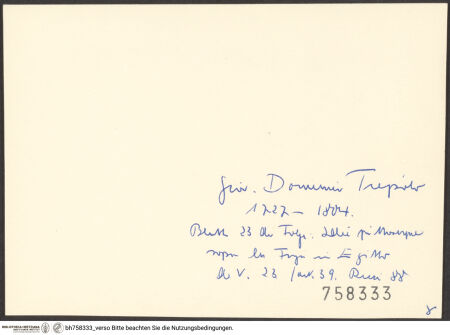 Giov. Domenico Tiepolo
1727 – 1804.
Blatt 23 der Folge: Idee pittoresque
sopra la Fuga in Egitto
de V. 23
758333
8
bh758333_verso Bitte beachten Sie die Nutzungsbedingungen.